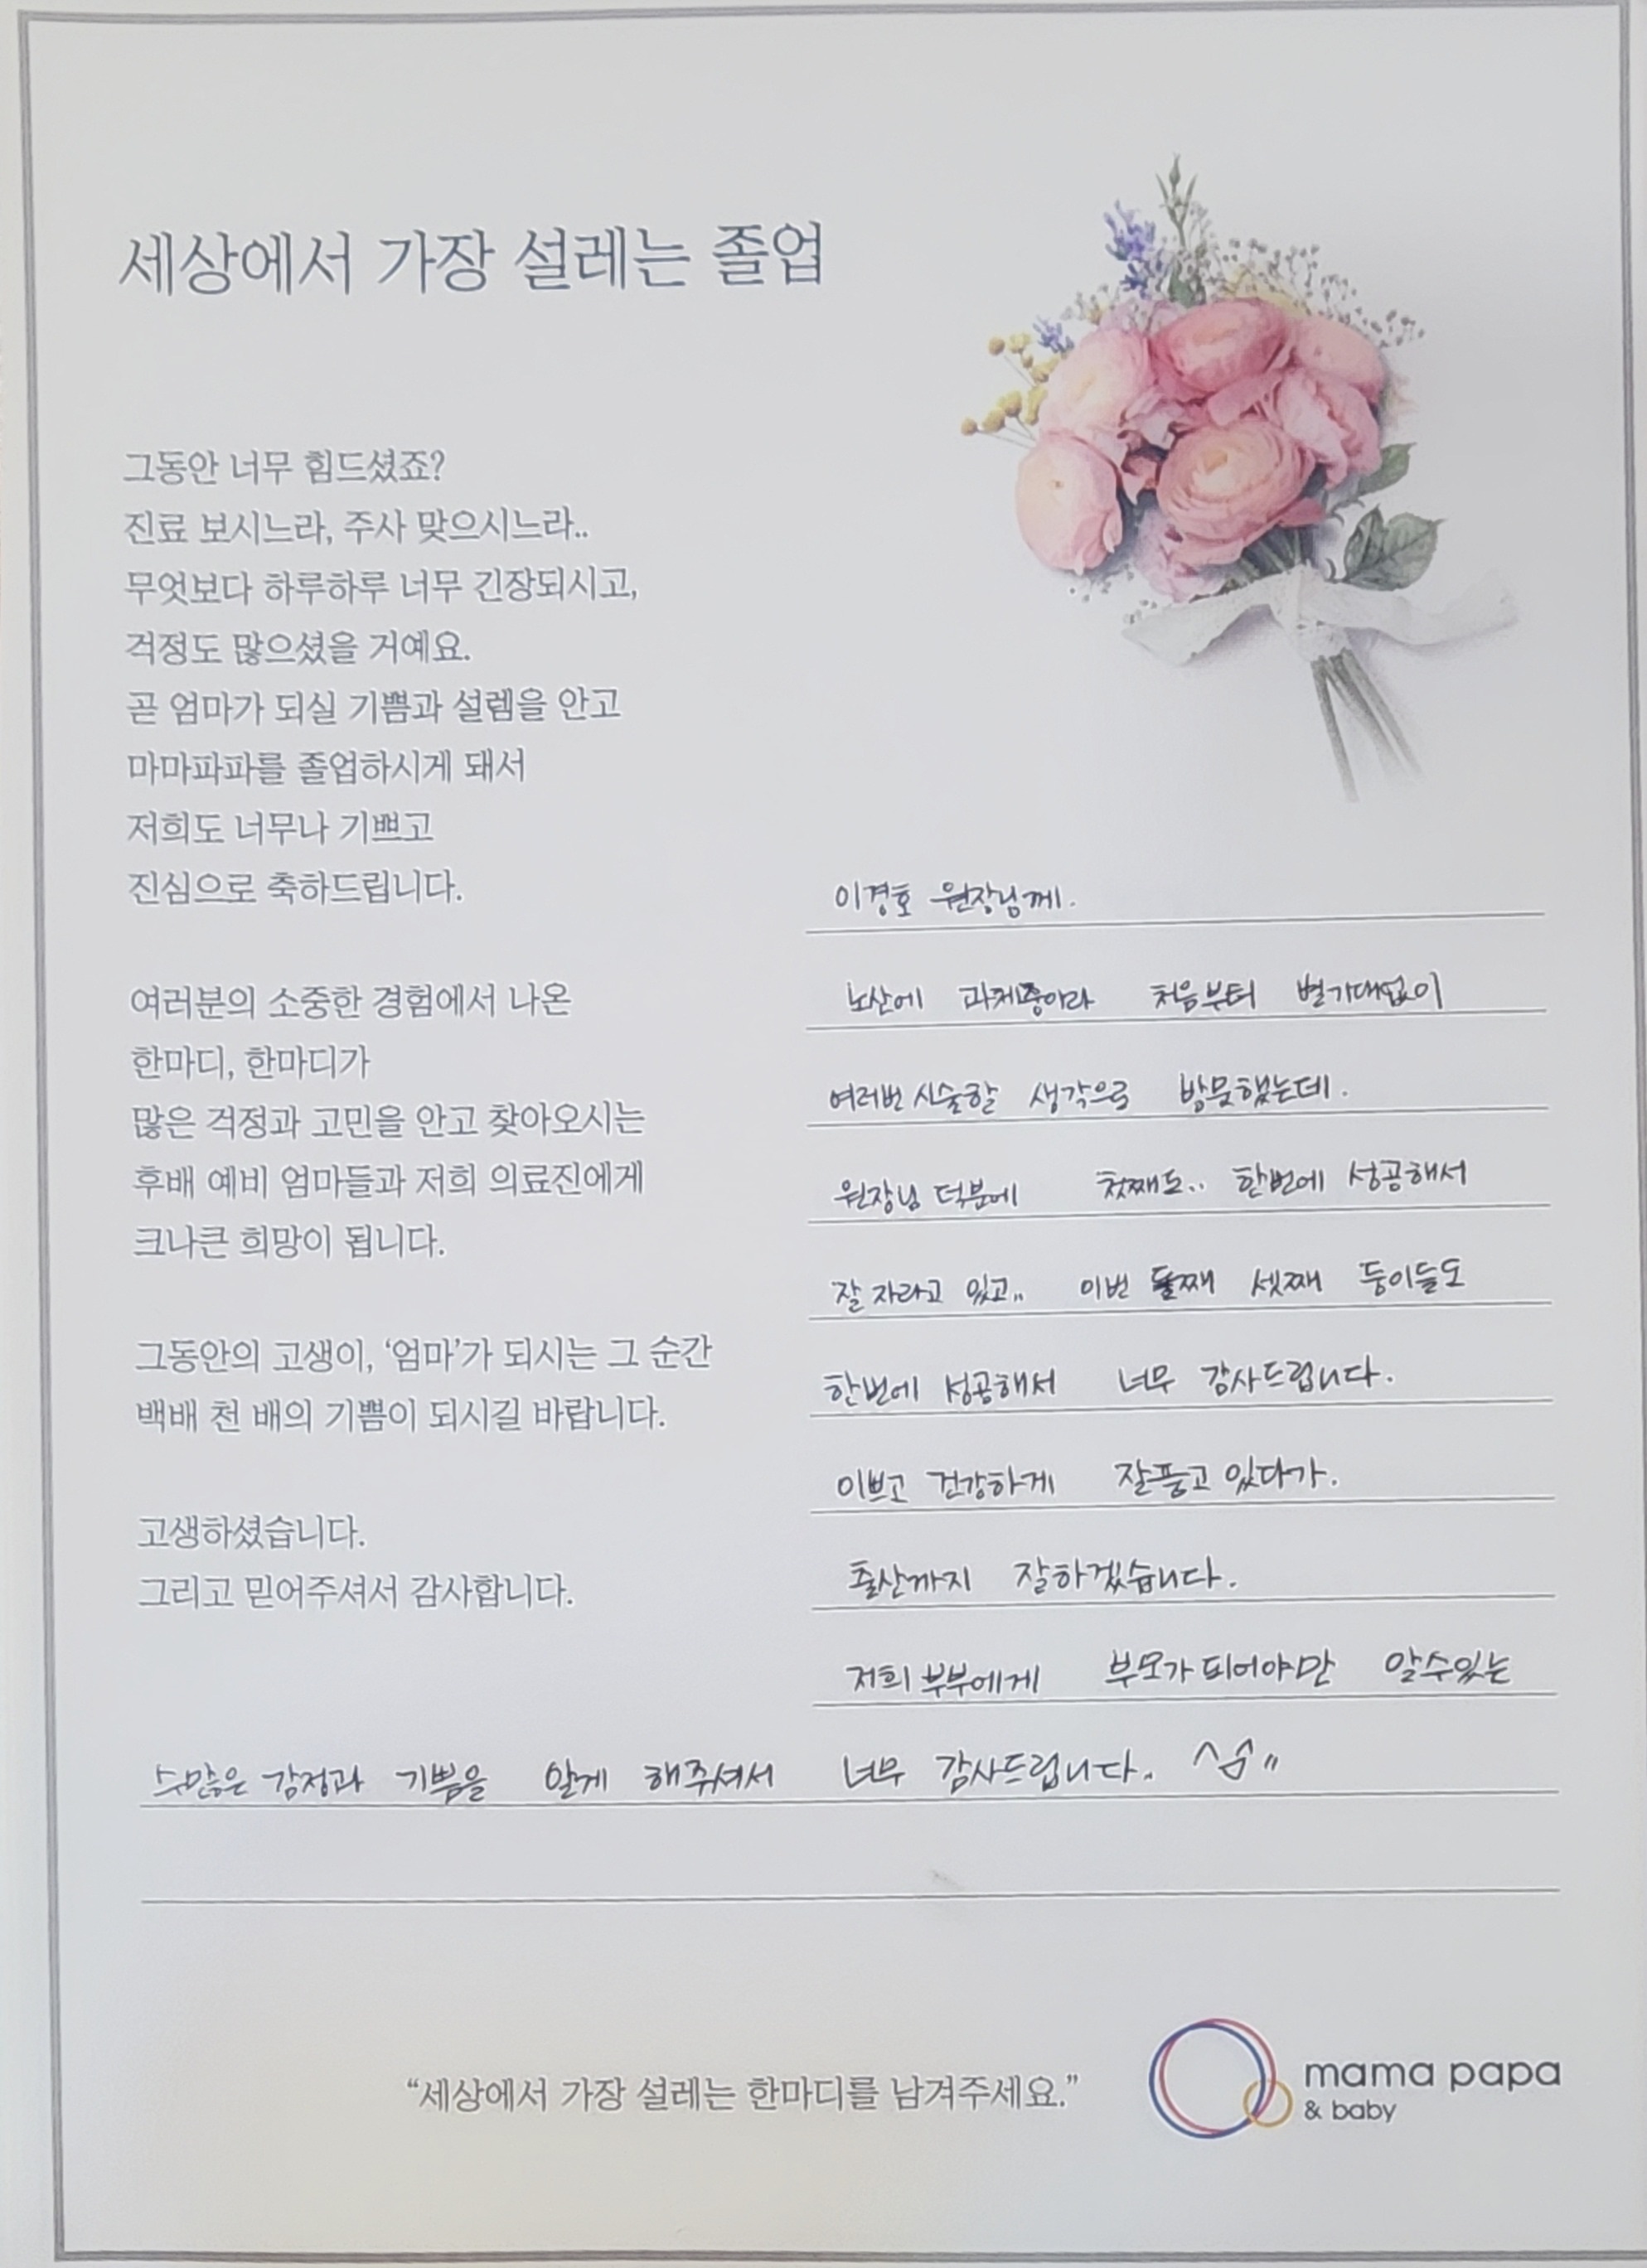 세상에서 가장 설레는 졸업
그동안 너무 힘드셨죠?
진료 보시느라, 주사 맞으시느라..
무엇보다 하루하루 너무 긴장되시고,
걱정도 많으셨을 거예요.
곧 엄마가 되실 기쁨과 설렘을 안고
마마파파를 졸업하시게 돼서
저희도 너무나 기쁘고
진심으로 축하드립니다.
여러분의 소중한 경험에서 나온
한마디, 한마디가
많은 걱정과 고민을 안고 찾아오시는
후배 예비 엄마들과 저희 의료진에게
크나큰 희망이 됩니다.
그동안의 고생이, ‘엄마’가 되시는 그 순간
백배 천 배의 기쁨이 되시길 바랍니다.
고생하셨습니다.
그리고 믿어주셔서 감사합니다.
이경호 원장님께.
노산에 과체중이라 처음부터 별기대없이
여러번 시술할 생각으로 방문했는데.
원장님 덕분에 첫째도.. 한번에 성공해서
잘 자라고 있고.. 이번 둘째 셋째 둥이들도
한번에 성공해서 너무 감사드립니다.
이쁘고 건강하게 잘품고 있다가.
출산까지 잘하겠습니다.
저희 부부에게 부모가 되어야만 알수있는
수많은 감정과 기쁨을 알게 해주셔서 너무 감사드립니다.
“세상에서 가장 설레는 한마디를 남겨주세요.”
mama papa
& baby